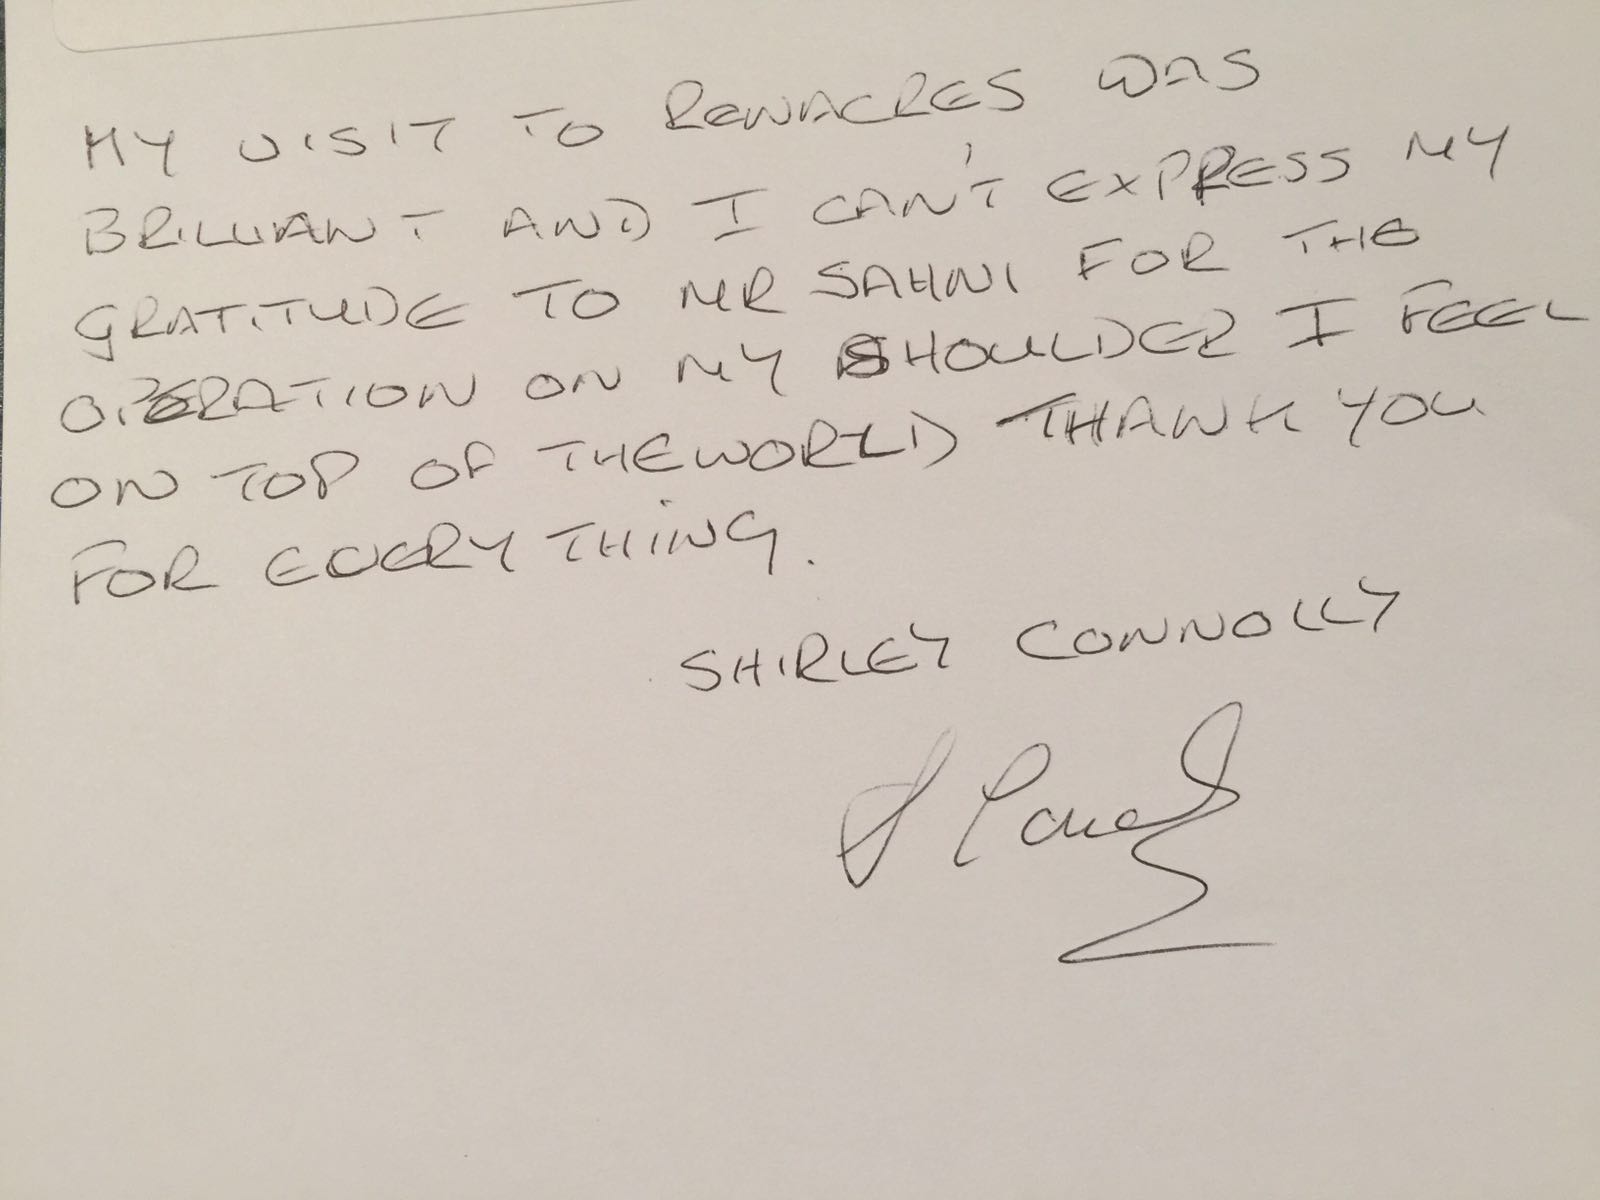 MY VISIT TO RENACRES WAS
BRILLIANT AND I CAN'T EXPRESS MY
GRATITUDE TO MR SAHNI FOR THE
OPERATION ON MY SHOULDER I FEEL
ON TOP OF THE WORLD THANK YOU
FOR EVERYTHING.
SHIRLEY CONNOLLY